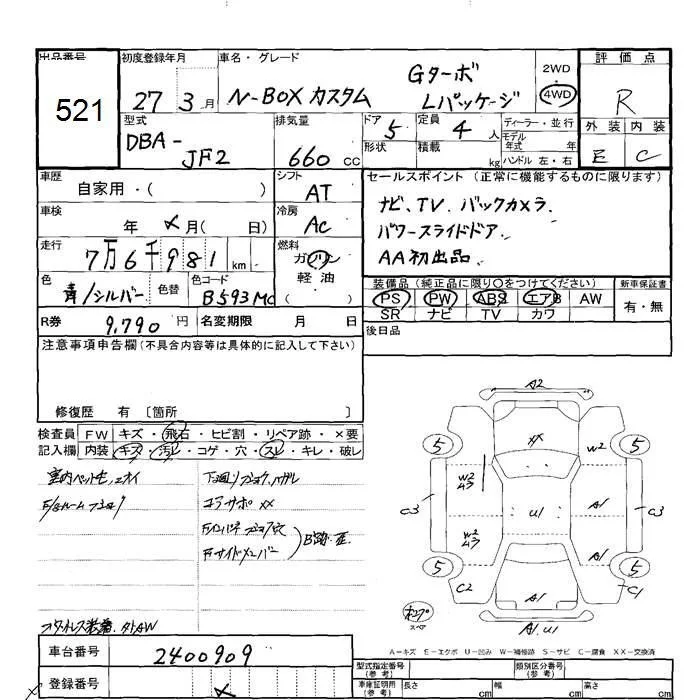 出品番号 初度登録年月 車名・グレード 評価点
521
27 3月 N-BOX カスタム Gターボ Lパッケージ 2WD 4WD R
型式 排気量 ドア 5 定員 4人 ディーラー・並行 外装 内装
DBA-JF2 660cc 形状 積載 kg モデル年式 年 ハンドル 左・右 E C
車歴 自家用・( ) シフト AT セールスポイント (正常に機能するものに限ります)
車検 年 メ月( 日) 冷房 AC ナビ、TV、バックカメラ
パワースライドドア
走行 7万6千981km 燃料 ガソリン 軽油 ( ) AA初出品
色 青/シルバー 色替 色コード B593MC 装備品(純正品に限り○をつけてください) 新車保証書
PS PW ABS エアB AW 有・無
SR ナビ TV カワ
R券 9,790円 名変期限 月 日 後日品
注意事項申告欄(不具合内容等は具体的に記入して下さい)
修復歴 有 〔箇所 〕
検査員 FW キズ・飛石・ヒビ割・リペア跡・×要
記入欄 内装 キズ・汚レ・コゲ・穴・スレ・キレ・破レ
室内ペット毛、ニオイ
下廻りフショク、ハガレ
コアサポ XX
A2
5 XX W2 5
W2 U3 A1
C3 U1 C3
W2 U3 A1
5 5
C2 A1 C1
A1.U1
スペア
A－キズ E－エクボ U－凹み W－補修跡 S－サビ C－腐食 XX－交換済
車台番号 2400909
登録番号 メ
型式指定番号(参考) 類別区分番号(参考)
車庫証明用(参考) 長さ cm 幅 cm 高さ cm